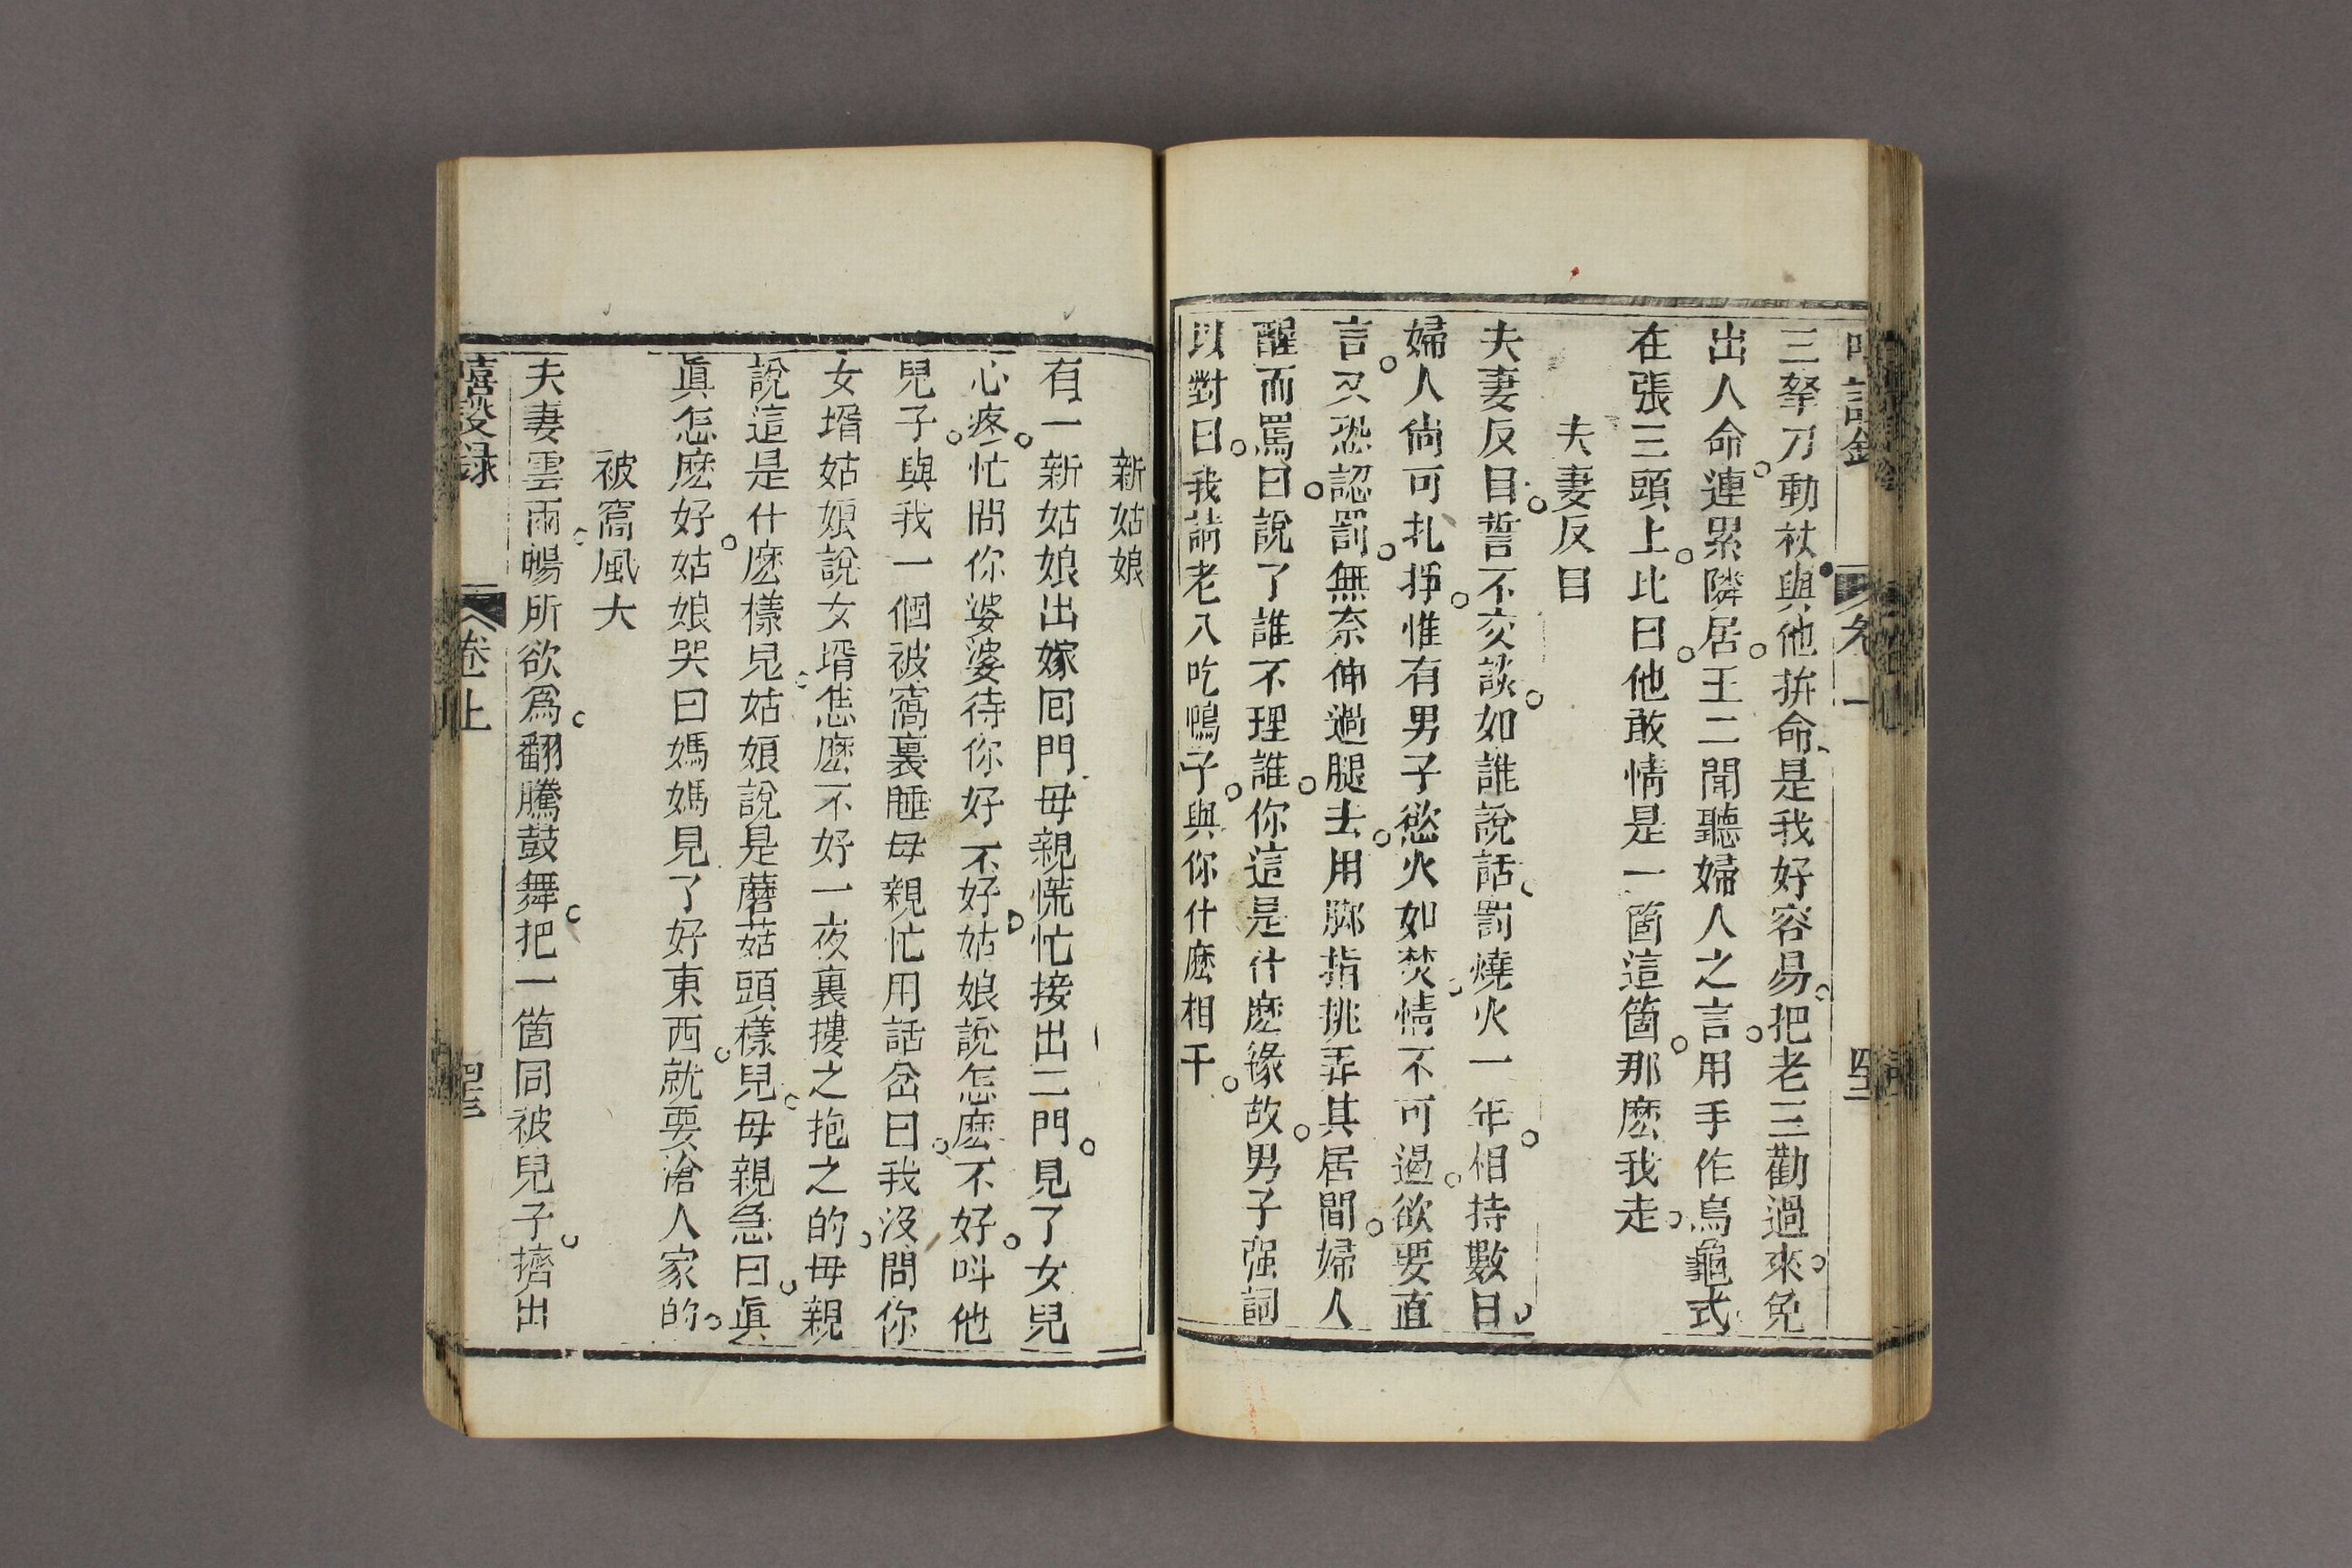 三拏刀動杖與他拚命是我好容易把老三勸過來免
出人命連累隣居王二聞聽婦人之言用手作烏龜式
在張三頭上比曰他敢情是一箇這箇那麽我走
夫妻反目
夫妻反目誓不交談如誰說話罰燒火一年相持數日
婦人尙可扎掙惟有男子慾火如焚情不可遏欲要直
言又恐認罰無奈伸過腿去用脚指挑弄其居間婦人
醒而罵曰說了誰不理誰你這是什麽緣故男子强詞
以對曰我請老八吃鴨子與你什麽相干
新姑娘
有一新姑娘出嫁囘門母親慌忙接出二門見了女兒
心疼忙問你婆婆待你好不好姑娘說怎麽不好呌他
兒子與我一個被窩裏睡母親忙用話岔曰我沒問你
女壻姑娘說女壻恁麽不好一夜裏摟之抱之的母親
說這是什麽樣兒姑娘說是蘑菇頭樣兒母親急曰眞
眞怎麽好姑娘哭曰媽媽見了好東西就要滄人家的
被窩風大
夫妻雲雨暢所欲爲翻騰鼓舞把一箇同被兒子擠出
嘻談录 卷上